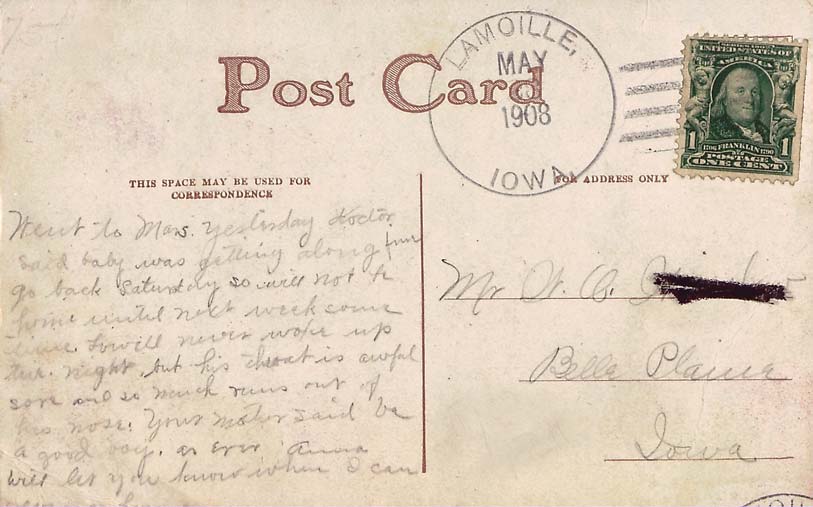 75
Post Card
LAMOILLE,
MAY
1908
IOWA.
SERIES 1902
UNITED STATES OF
AMERICA
1706 FRANKLIN 1790
POSTAGE
1 ONE CENT 1
THIS SPACE MAY BE USED FOR
CORRESPONDENCE
FOR ADDRESS ONLY
Went to Mars. yesterday Doctor
said baby was getting along fine
go back Saturday so will not be
home until next week some
time. Lowell never woke up
the night, but his throat is awful
sore and so much runs out of
his nose. Your mother said be
a good boy. as ever Anna
will let you know when I can
Mr W. C.
Belle Plaine
Iowa